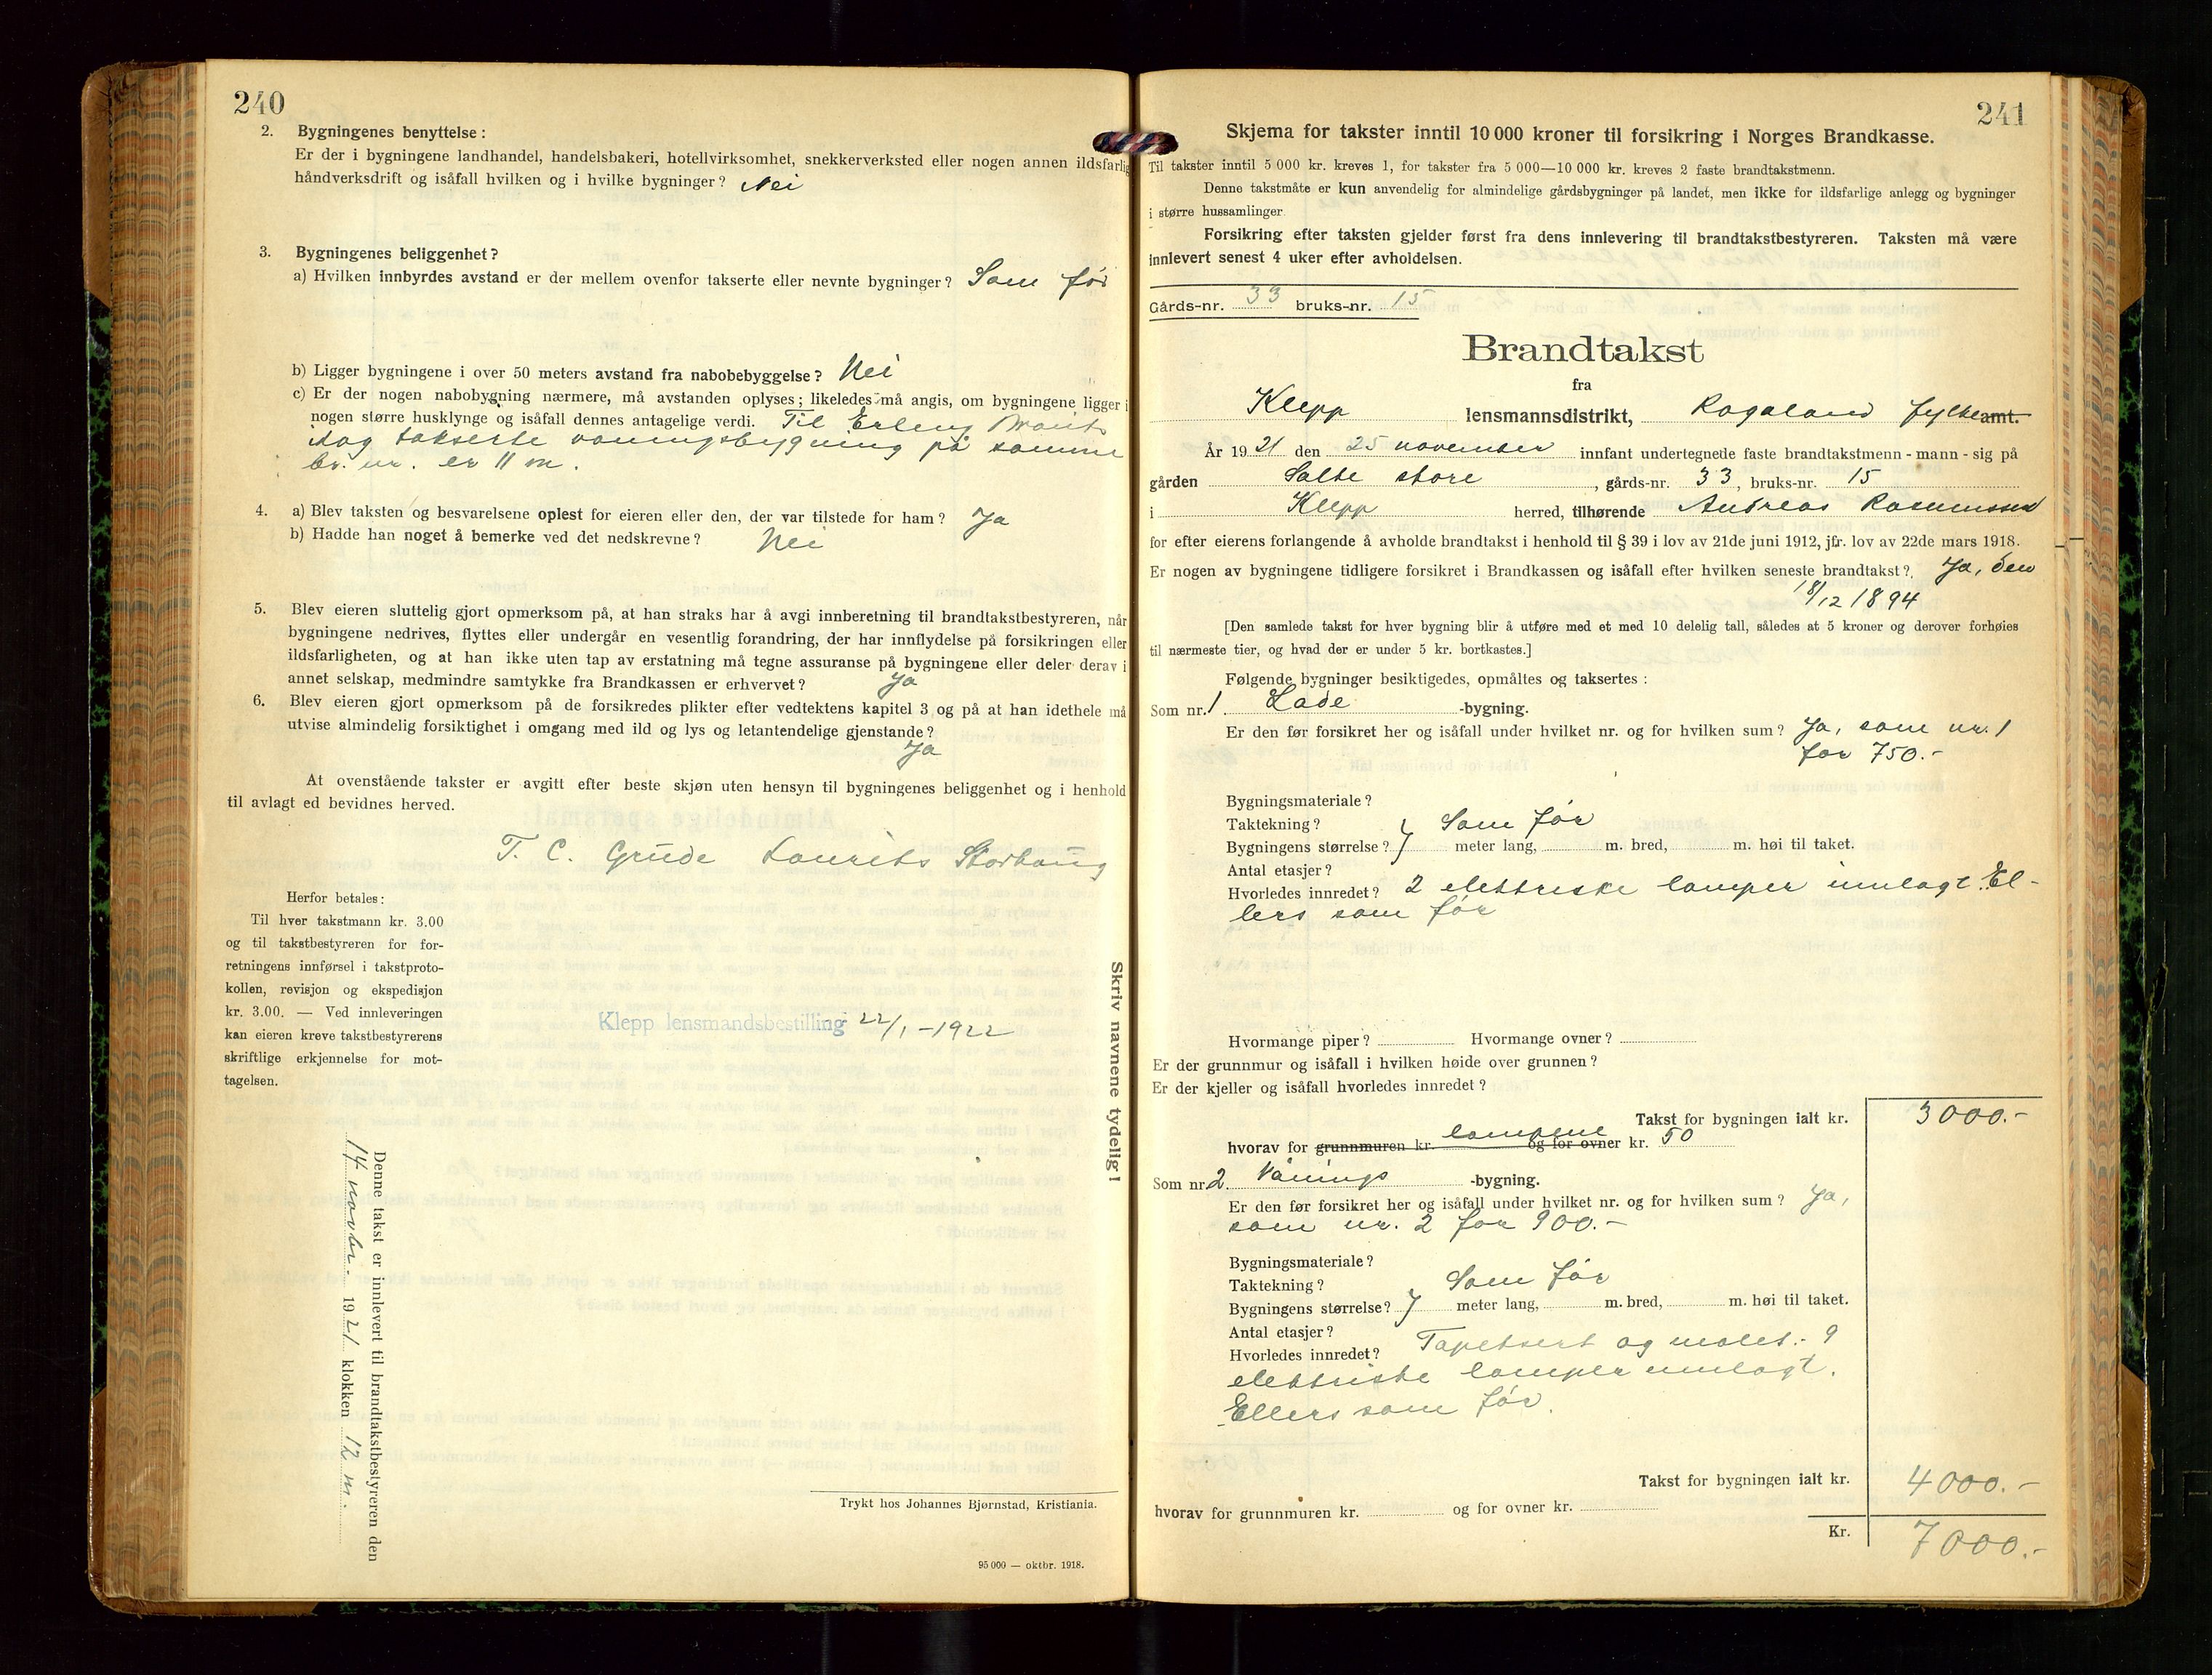 240
2. Bygningenes benyttelse:
Er der i bygningene landhandel, handelsbakeri, hotellvirksomhet, snekkerverksted eller nogen annen ildsfarlig
håndverksdrift og isåfall hvilken og i hvilke bygninger? Nei
3. Bygningenes beliggenhet?
a) Hvilken innbyrdes avstand er der mellem ovenfor takserte eller nevnte bygninger? Som før
b) Ligger bygningene i over 50 meters avstand fra nabobebyggelse? Nei
c) Er der nogen nabobygning nærmere, må avstanden oplyses; likeledes må angis, om bygningene ligger i
nogen større husklynge og isåfall dennes antagelige verdi. Til Erling
idag takserte vaaningsbygning på samme
br. nr. er 11 m.
4. a) Blev taksten og besvarelsene oplest for eieren eller den, der var tilstede for ham? Ja
b) Hadde han noget å bemerke ved det nedskrevne? Nei
5. Blev eieren sluttelig gjort opmerksom på, at han straks har å avgi innberetning til brandtakstbestyreren, når
bygningene nedrives, flyttes eller undergår en vesentlig forandring, der har innflydelse på forsikringen eller
ildsfarligheten, og at han ikke uten tap av erstatning må tegne assuranse på bygningene eller deler derav i
annet selskap, medmindre samtykke fra Brandkassen er erhvervet? Ja
6. Blev eieren gjort opmerksom på de forsikredes plikter efter vedtektens kapitel 3 og på at han idethele må
utvise almindelig forsiktighet i omgang med ild og lys og letantendelige gjenstande?
Ja
At ovenstående takster er avgitt efter beste skjøn uten hensyn til bygningenes beliggenhet og i henhold
til avlagt ed bevidnes herved.
T. C. Grude Laurits Storhaug
Herfor betales:
Til hver takstmann kr. 3.00
og til takstbestyreren for for-
retningens innførsel i takstproto-
kollen, revisjon og ekspedisjon
kr. 3.00. — Ved innleveringen
kan eieren kreve takstbestyrerens
skriftlige erkjennelse for mot-
tagelsen.
Klepp lensmandsbestilling 22/1 - 1922
Skriv navnene tydelig!
Denne takst er innlevert til brandtakstbestyreren den
14 novbr. 1921 klokken 12 m.
Trykt hos Johannes Bjørnstad, Kristiania.
95 000 — oktbr. 1918.
241
Skjema for takster inntil 10 000 kroner til forsikring i Norges Brandkasse.
Til takster inntil 5 000 kr. kreves 1, for takster fra 5 000—10 000 kr. kreves 2 faste brandtakstmenn.
Denne takstmåte er kun anvendelig for almindelige gårdsbygninger på landet, men ikke for ildsfarlige anlegg og bygninger
i større hussamlinger.
Forsikring efter taksten gjelder først fra dens innlevering til brandtakstbestyreren. Taksten må være
innlevert senest 4 uker efter avholdelsen.
Gårds-nr. 33 bruks-nr. 15
Brandtakst
fra
Klepp lensmannsdistrikt, Rogaland fylke amt.
År 1921 den 25 november innfant undertegnede faste brandtakstmenn - mann - sig på
gården Salte store, gårds-nr. 33, bruks-nr. 15
i Klepp herred, tilhørende Andreas Rasmussen
for efter eierens forlangende å avholde brandtakst i henhold til § 39 i lov av 21de juni 1912, jfr. lov av 22de mars 1918.
Er nogen av bygningene tidligere forsikret i Brandkassen og isåfall efter hvilken seneste brandtakst? Ja, den
18/12 1894
[Den samlede takst for hver bygning blir å utføre med et med 10 delelig tall, således at 5 kroner og derover forhøies
til nærmeste tier, og hvad der er under 5 kr. bortkastes.]
Følgende bygninger besiktigedes, opmåltes og taksertes:
Som nr. 1 Lade -bygning.
Er den før forsikret her og isåfall under hvilket nr. og for hvilken sum? Ja, som nr. 1
for 750.-
Bygningsmateriale?
Taktekning? Som før
Bygningens størrelse? meter lang, m. bred, m. høi til taket.
Antal etasjer?
Hvorledes innredet? 2 elektriske lamper innlagt. El-
lers som før
Hvormange piper? Hvormange ovner?
Er der grunnmur og isåfall i hvilken høide over grunnen?
Er der kjeller og isåfall hvorledes innredet?
Takst for bygningen ialt kr. 3000.-
hvorav for grunnmuren kr. lampene og for ovner kr. 50
Som nr. 2 Vånings -bygning.
Er den før forsikret her og isåfall under hvilket nr. og for hvilken sum? Ja,
som nr. 2 for 900.-
Bygningsmateriale?
Taktekning? Som før
Bygningens størrelse? meter lang, m. bred, m. høi til taket.
Antal etasjer?
Hvorledes innredet? Tapetsert og malet.- 9
elektriske lamper innlagt.
Ellers som før.
Takst for bygningen ialt kr. 4000.-
hvorav for grunnmuren kr. og for ovner kr.
Kr. 7000.-